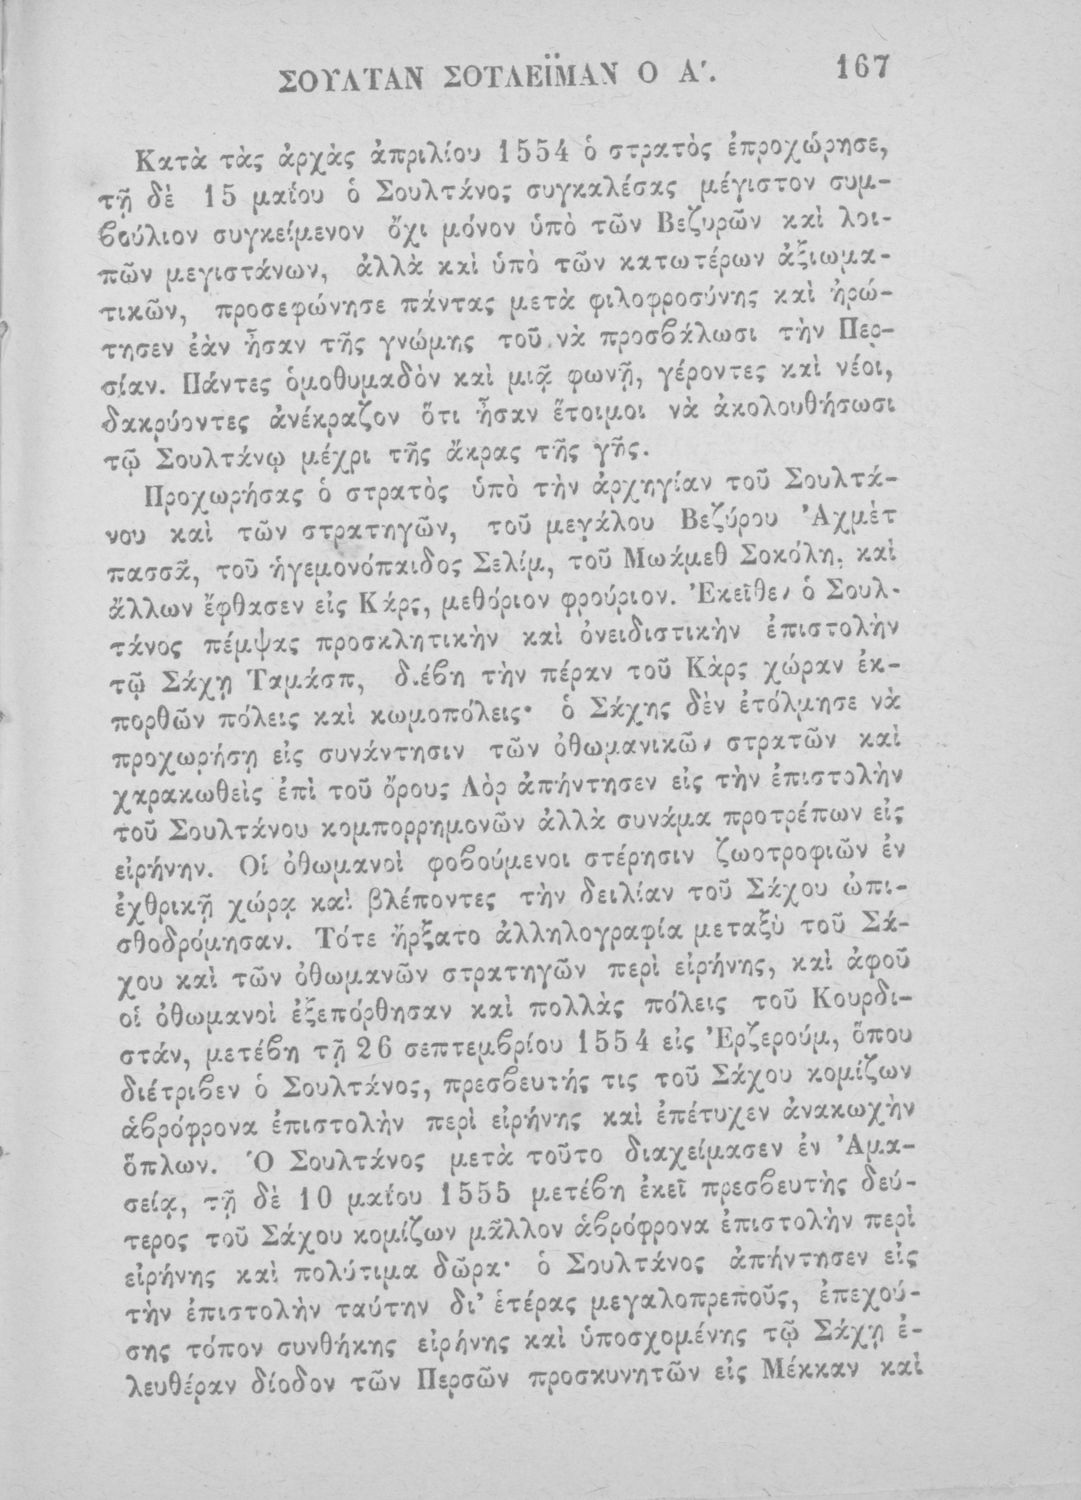 ΣΟΥΛΤΑΝ ΣΟΤΛΕΪΜΑΝ Ο Α΄. 167
Κατὰ τὰς ἀρχὰς ἀπριλίου 1554 ὁ στρατὸς ἐπροχώρησε,
τῇ δὲ 15 μαΐου ὁ Σουλτάνος συγκαλέσας μέγιστον συμ-
βούλιον συγκείμενον ὄχι μόνον ὑπὸ τῶν Βεζυρῶν καὶ λοι-
πῶν μεγιστάνων, ἀλλὰ καὶ ὑπὸ τῶν κατωτέρων ἀξιωμα-
τικῶν, προσεφώνησε πάντας μετὰ φιλοφροσύνης καὶ ἠρώ-
τησεν ἐὰν ἦσαν τῆς γνώμης τοῦ νὰ προσβάλωσι τὴν Περ-
σίαν. Πάντες ὁμοθυμαδὸν καὶ μιᾷ φωνῇ, γέροντες καὶ νέοι,
δακρύοντες ἀνέκραζον ὅτι ἦσαν ἕτοιμοι νὰ ἀκολουθήσωσι
τῷ Σουλτάνῳ μέχρι τῆς ἄκρας τῆς γῆς.
Προχωρήσας ὁ στρατὸς ὑπὸ τὴν ἀρχηγίαν τοῦ Σουλτά-
νου καὶ τῶν στρατηγῶν, τοῦ μεγάλου Βεζύρου Ἀχμὲτ
πασσᾶ, τοῦ ἡγεμονόπαιδος Σελίμ, τοῦ Μωάμεθ Σοκόλη, καὶ
ἄλλων ἔφθασεν εἰς Κάρς, μεθόριον φρούριον. Ἐκεῖθεν ὁ Σουλ-
τάνος πέμψας προσκλητικὴν καὶ ὀνειδιστικὴν ἐπιστολὴν
τῷ Σάχῃ Ταμάσπ, διέβη τὴν πέραν τοῦ Κὰρς χώραν ἐκ-
πορθῶν πόλεις καὶ κωμοπόλεις· ὁ Σάχης δὲν ἐτόλμησε νὰ
προχωρήσῃ εἰς συνάντησιν τῶν ὀθωμανικῶν στρατῶν καὶ
χαρακωθεὶς ἐπὶ τοῦ ὄρους Λὸρ ἀπήντησεν εἰς τὴν ἐπιστολὴν
τοῦ Σουλτάνου κομπορρημονῶν ἀλλὰ συνάμα προτρέπων εἰς
εἰρήνην. Οἱ ὀθωμανοὶ φοβούμενοι στέρησιν ζωοτροφιῶν ἐν
ἐχθρικῇ χώρᾳ καὶ βλέποντες τὴν δειλίαν τοῦ Σάχου ὠπι-
σθοδρόμησαν. Τότε ἤρξατο ἀλληλογραφία μεταξὺ τοῦ Σά-
χου καὶ τῶν ὀθωμανῶν στρατηγῶν περὶ εἰρήνης, καὶ ἀφοῦ
οἱ ὀθωμανοὶ ἐξεπόρθησαν καὶ πολλὰς πόλεις τοῦ Κουρδι-
στάν, μετέβη τῇ 26 σεπτεμβρίου 1554 εἰς Ἐρζερούμ, ὅπου
διέτριβεν ὁ Σουλτάνος, πρεσβευτής τις τοῦ Σάχου κομίζων
ἁβρόφρονα ἐπιστολὴν περὶ εἰρήνης καὶ ἐπέτυχεν ἀνακωχὴν
ὅπλων. Ὁ Σουλτάνος μετὰ τοῦτο διαχείμασεν ἐν Ἀμα-
σείᾳ, τῇ δὲ 10 μαΐου 1555 μετέβη ἐκεῖ πρεσβευτὴς δεύ-
τερος τοῦ Σάχου κομίζων μᾶλλον ἁβρόφρονα ἐπιστολὴν περὶ
εἰρήνης καὶ πολύτιμα δῶρα· ὁ Σουλτάνος ἀπήντησεν εἰς
τὴν ἐπιστολὴν ταύτην δι' ἑτέρας μεγαλοπρεποῦς, ἐπεχού-
σης τόπον συνθήκης εἰρήνης καὶ ὑποσχομένης τῷ Σάχῃ ἐ-
λευθέραν δίοδον τῶν Περσῶν προσκυνητῶν εἰς Μέκκαν καὶ